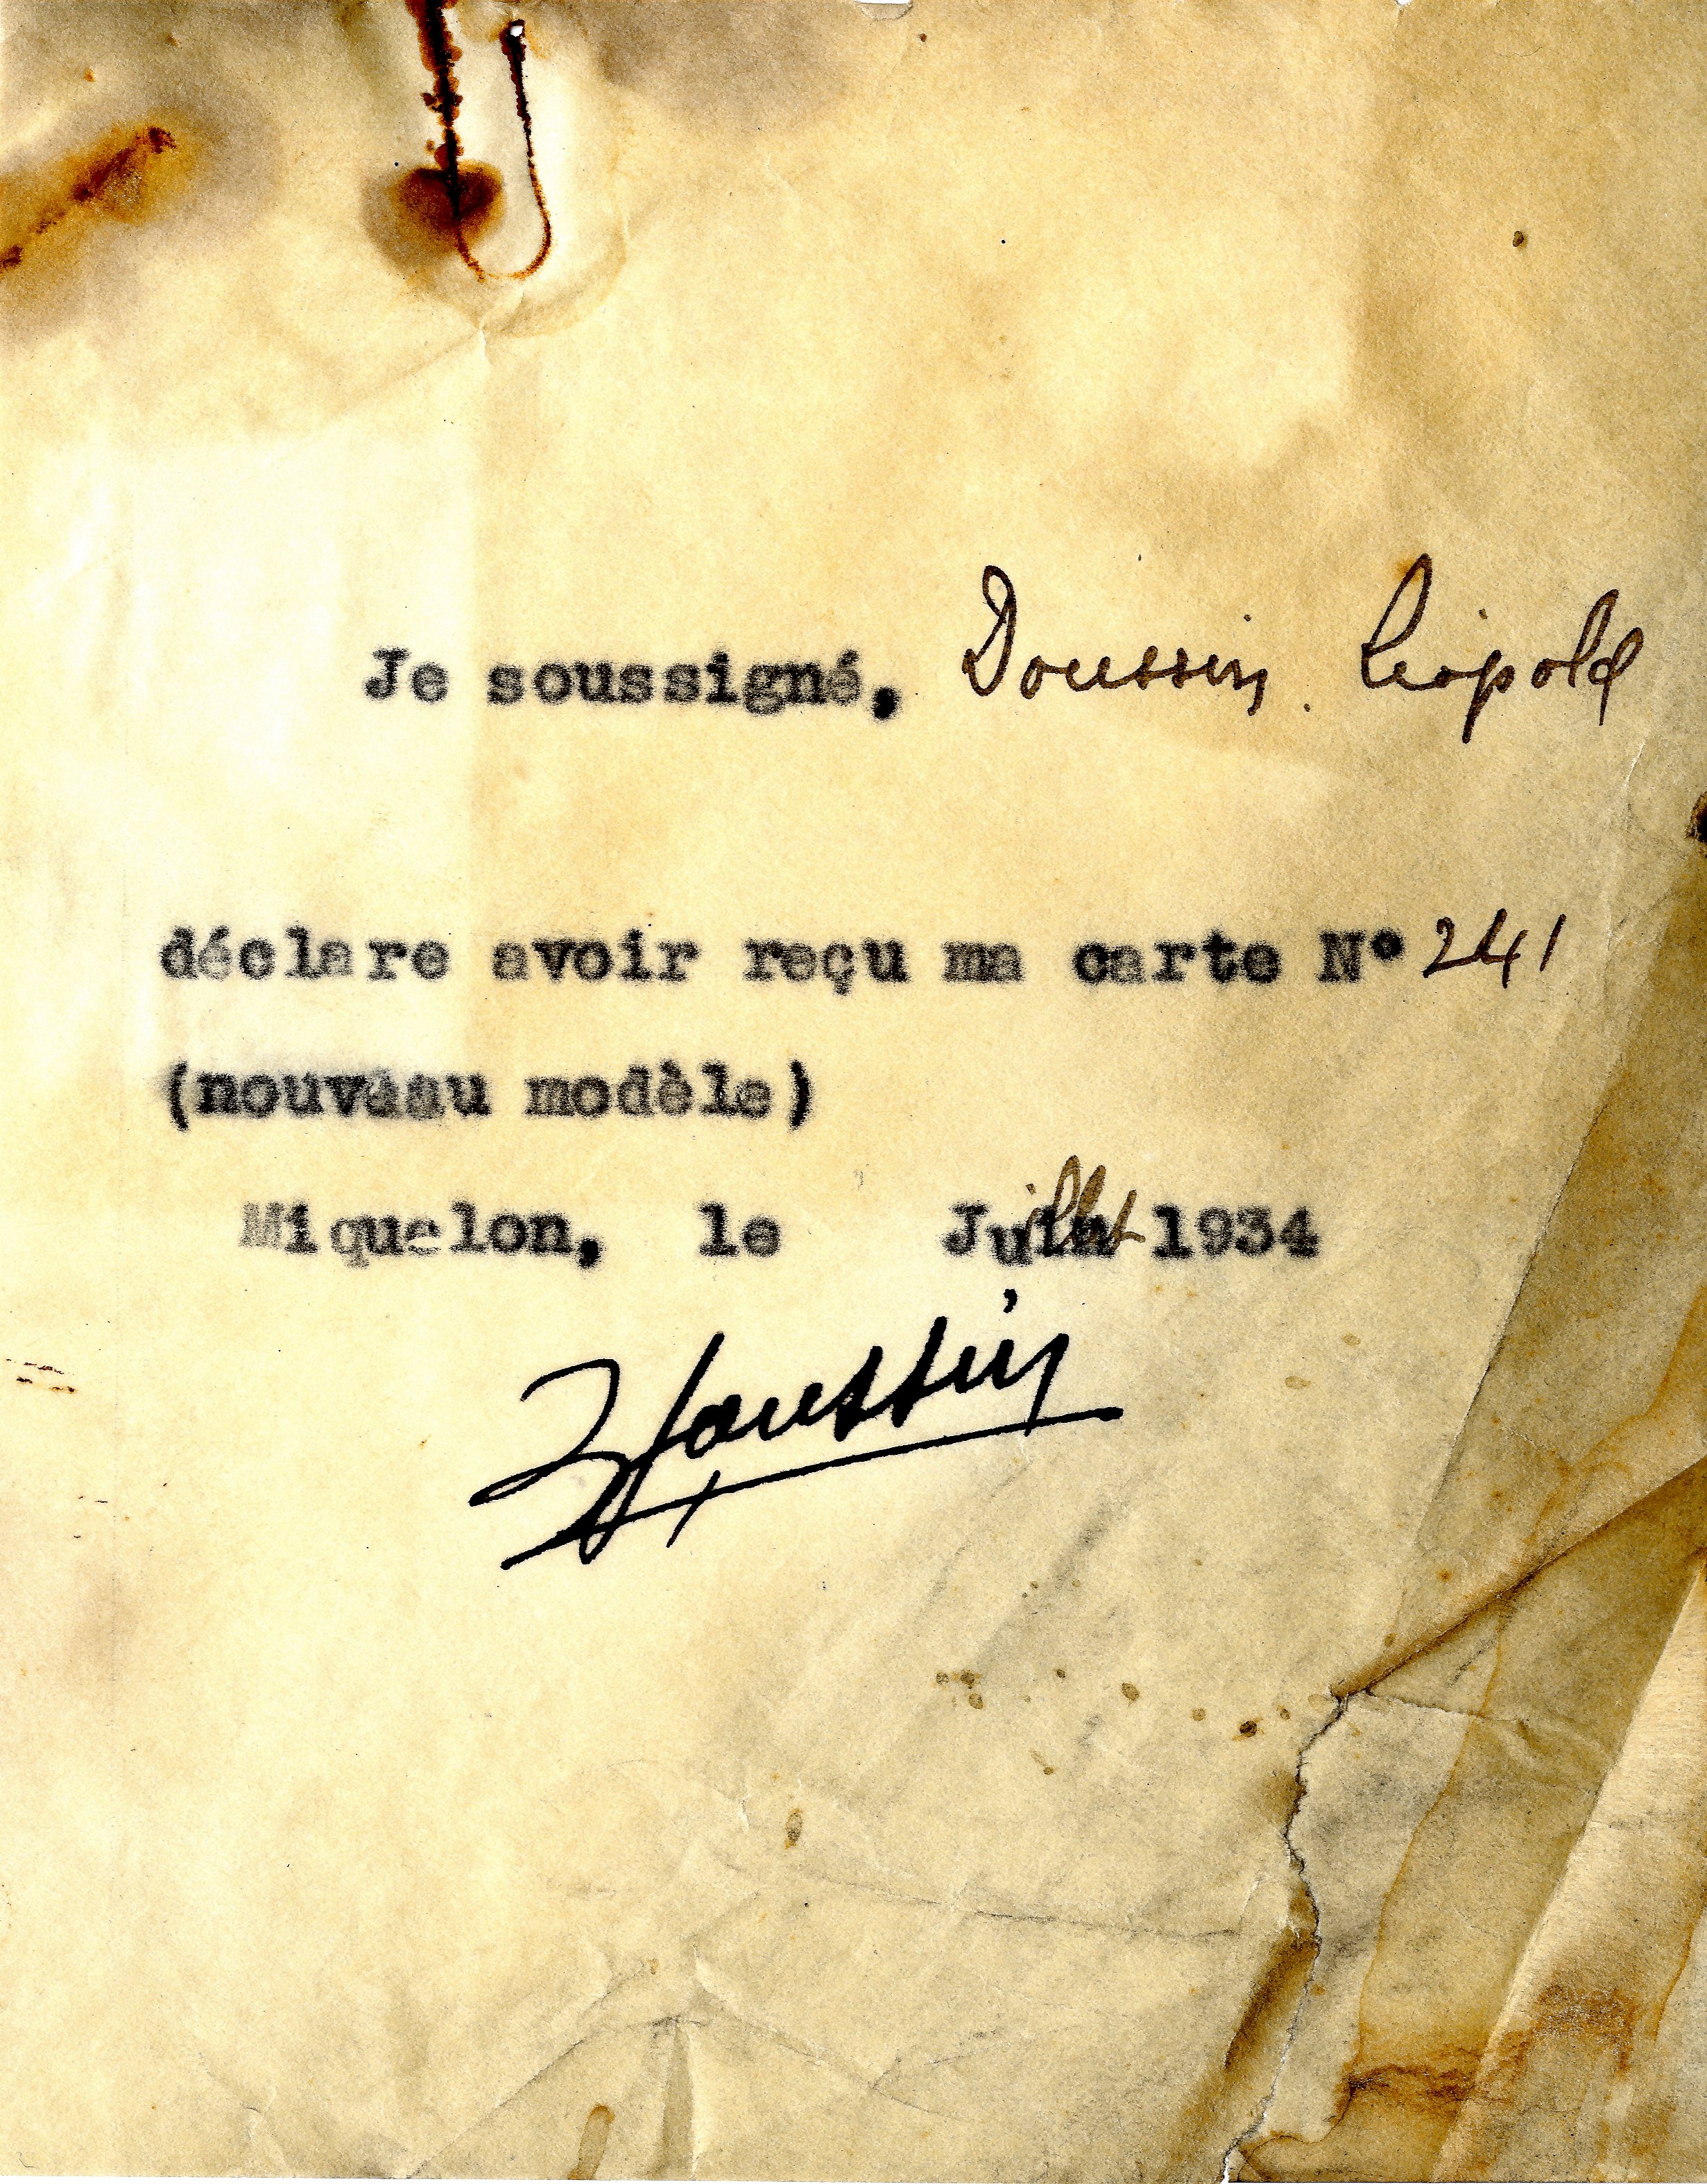 Je soussigné, Doussin. Léopold
déclare avoir reçu ma carte N° 241
(nouveau modèle)
Miquelon, le Juillet 1934
Doussin